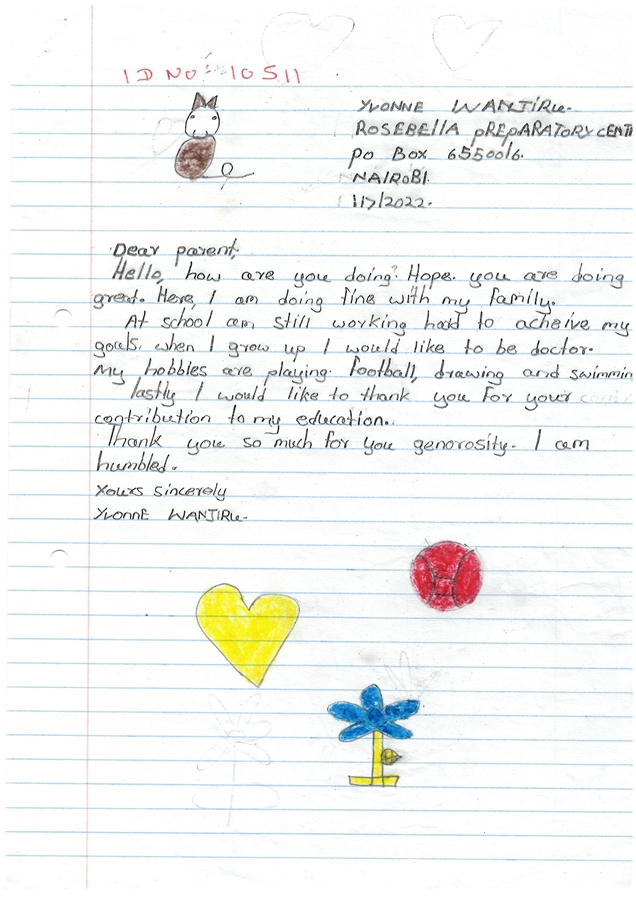 ID NO:- 10511
YVONNE WANJIRU.
ROSEBELLA PREPARATORY CENT
PO BOX 65500/6.
NAIROBI.
1/7/2022.
Dear parent,
Hello, how are you doing? Hope. you are doing
great. Here, I am doing fine with my family.
At school am still working hard to acheive my
goals. when I grow up I would like to be doctor.
My hobbles are playing. football, drawing and swimmin
lastly I would like to thank you for your
contribution to my education..
Thank you so much for you generosity. I am
humbled.
Yours sincerely
YVONNE WANJIRU.